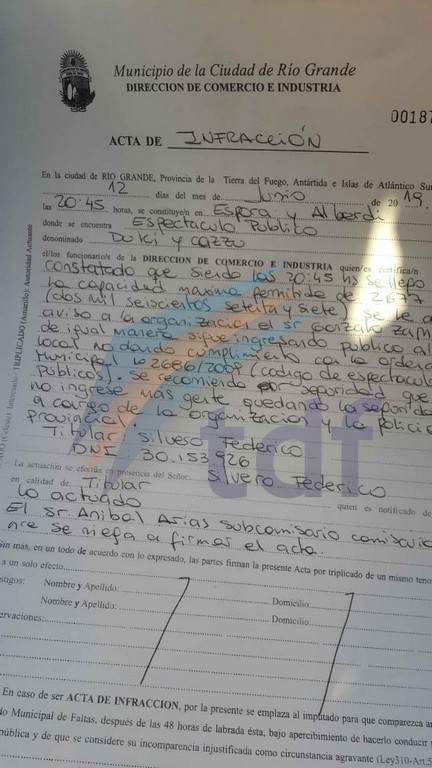 Municipio de la Ciudad de Río Grande
DIRECCION DE COMERCIO E INDUSTRIA
00187
ACTA DE INFRACCIÓN
En la ciudad de RIO GRANDE, Provincia de la Tierra del Fuego, Antártida e Islas de Atlántico Sur
12 días del mes de Junio de 2019
las 20:45 horas, se constituye/n en Espora y Alberdi
donde se encuentra Espectaculo Publico
denominado Duki y Cazzu
el/los funcionario/s de la DIRECCION DE COMERCIO E INDUSTRIA quien/es
constatado que siendo las 20:45 hs se llego
la capacidad maxima permitida de 2677
(dos mil seiscientos setenta y siete). se le a
aviso a la organizacion el sr Gonzalo Zam
de igual manera sigue ingresando publico al
local no dando cumplimiento con la ordena
Municipal N° 2686/2009 (codigo de espectaculo
públicos). se recomienda seguridad que
no ingrese mas gente quedando la segurida
a cargo de la organizacion y la policia
Provincial.
Titular Silvero Federico
DNI 30.153.926
La actuación se efectúa en presencia del Señor: Silvero Federico
en calidad de: Titular quien es notificado de
lo actuado
El sr. Anibal Arias subcomisario comisaria
se niega a firmar el acta.
Sin más, en un todo de acuerdo con lo expresado, las partes firman la presente Acta por triplicado de un mismo teno
a un solo efecto
stigos: Nombre y Apellido: Domicilio:
Nombre y Apellido: Domicilio:
ervaciones:
En caso de ser ACTA DE INFRACCION, por la presente se emplaza al imputado para que comparezca an
do Municipal de Faltas, después de las 48 horas de labrada ésta, bajo apercibimiento de hacerlo conducir
pública y de que se considere su incomparencia injustificada como circunstancia agravante (Ley310-Art.5
TRIPLICADO (Amarillo): Autoridad Actuante
tdf